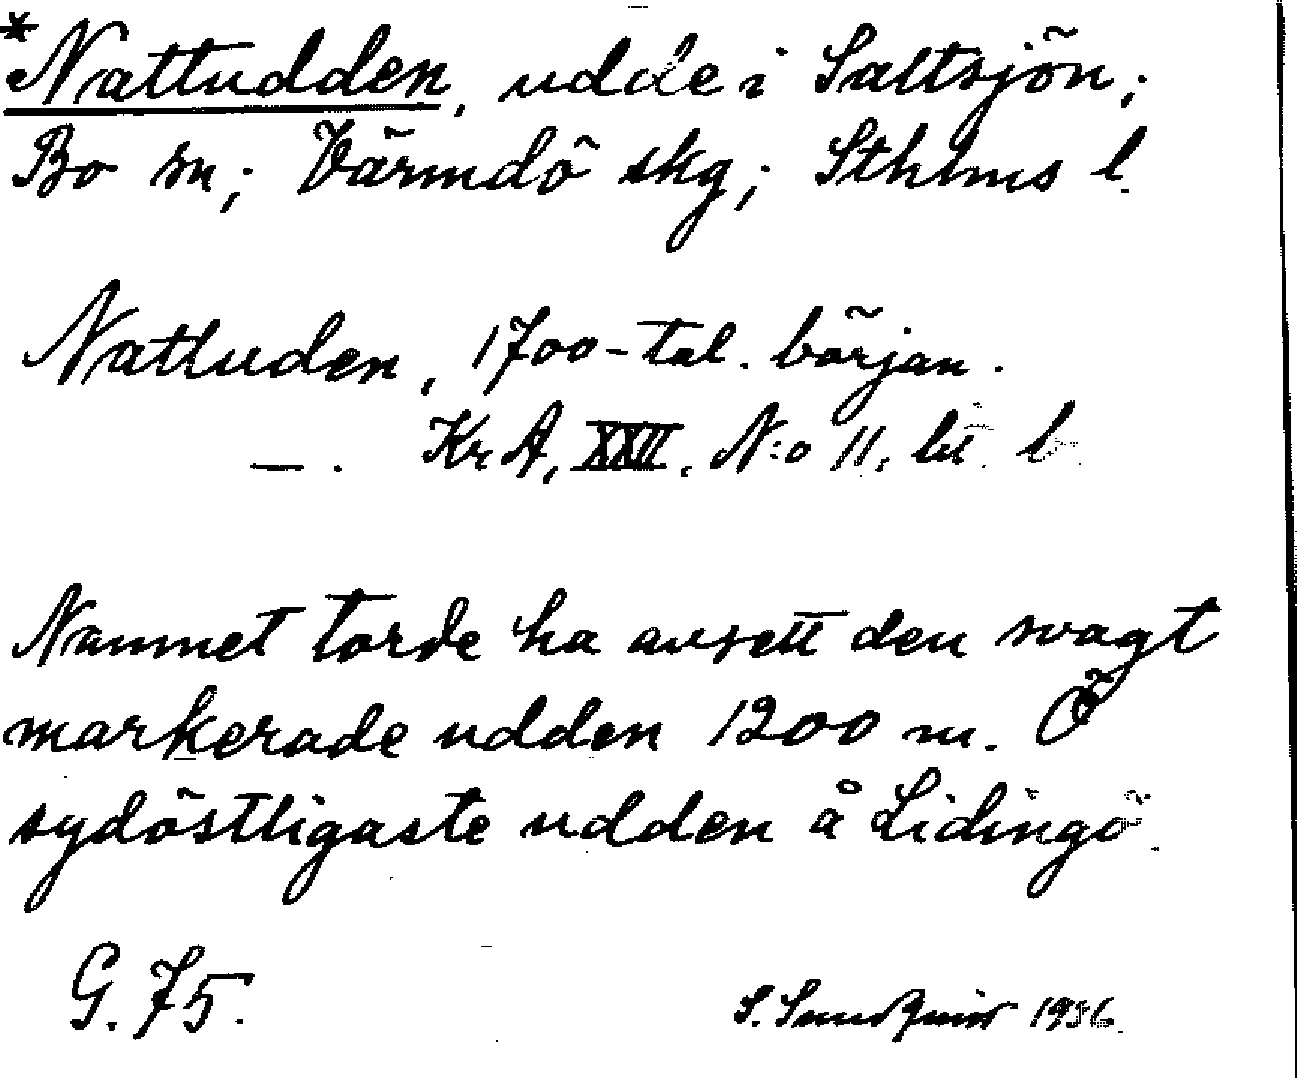 *Nattudden, udde i Saltsjön;
Bo sn; Värmdö skg; Sthlms l.
Nattuden, 1700-tal. början.
— . KrA, XXII, N:o 11, lit. b.
Namnet torde ha avsett den svagt
markerade udden 1200 m. Ö
sydöstligaste udden å Lidingö.
G. 75.
S. Sundquist 1936.